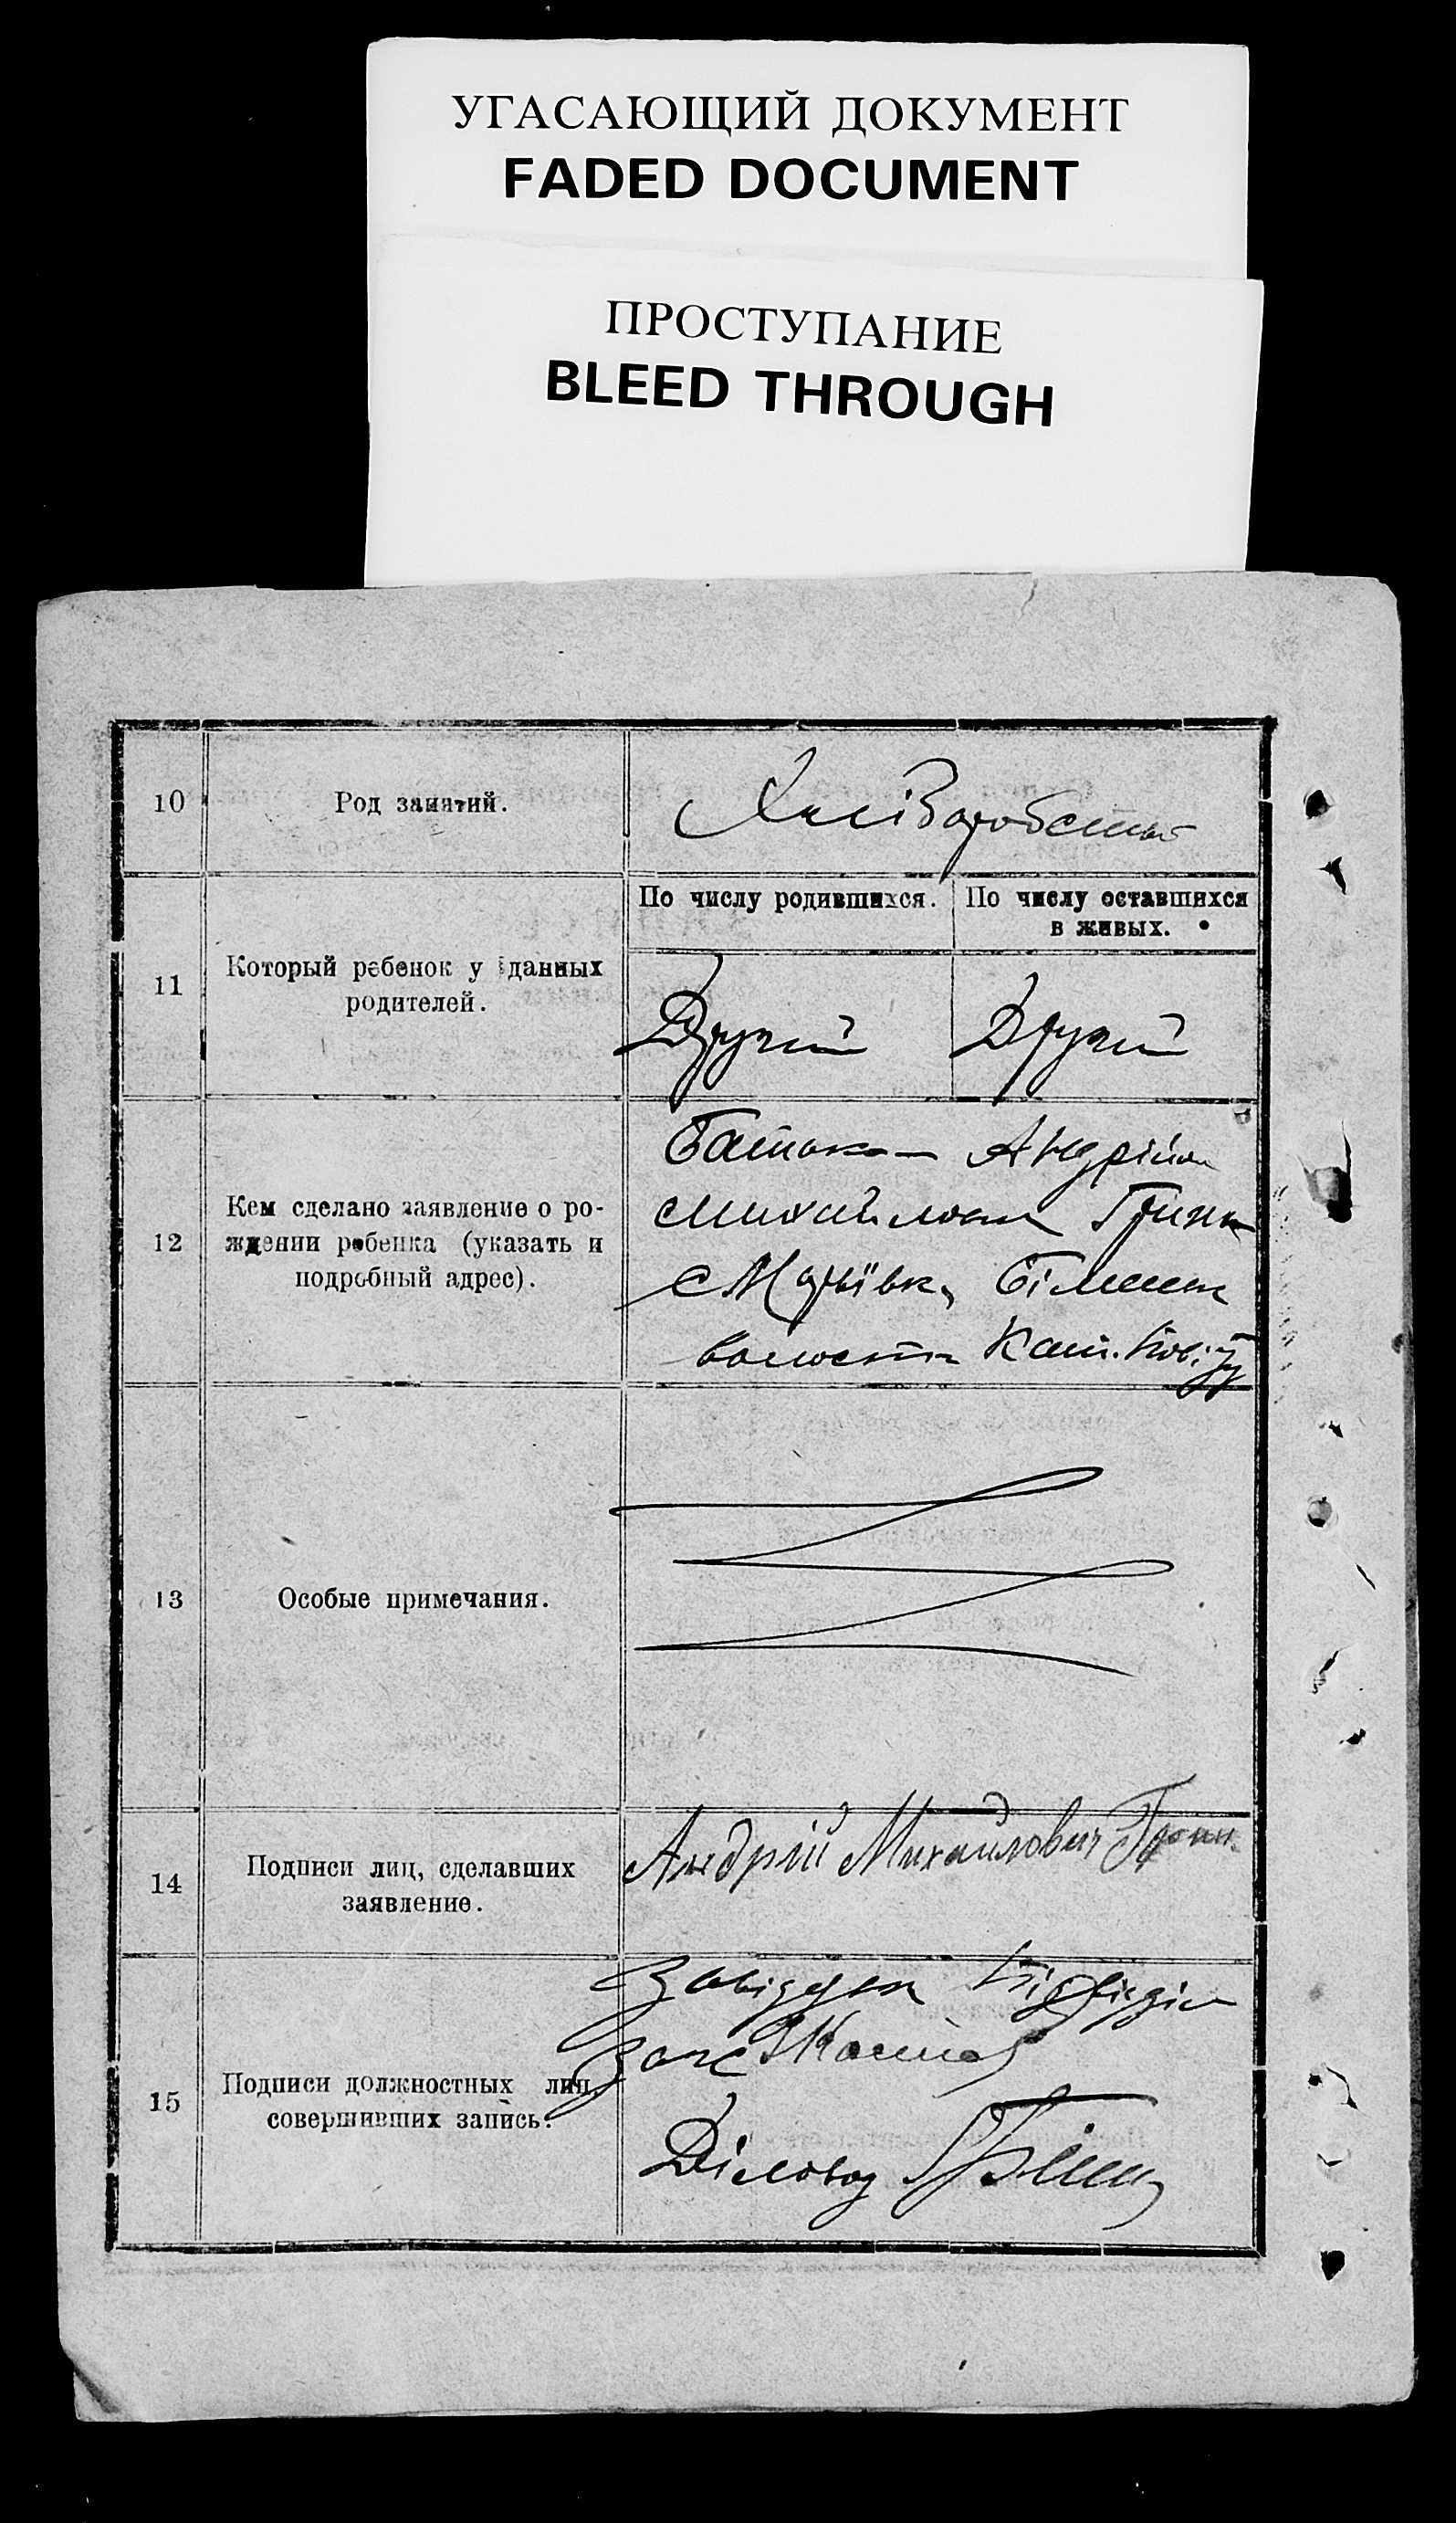 УГАСАЮЩИЙ ДОКУМЕНТ
FADED DOCUMENT
ПРОСТУПАНИЕ
BLEED THROUGH
10
Род занятий.
Хліборобство
11
Который ребенок у данных
родителей.
По числу родившихся.
По числу оставшихся
в живых.
Другий
Другий
12
Кем сделано заявление о ро-
ждении ребенка (указать и
подробный адрес).
Батьком Андрієм
Михайловим
с
волости Кат. повіту
13
Особые примечания.
14
Подписи лиц, сделавших
заявление.
Андрій Михайлович
15
Подписи должностных лиц,
совершивших запись:
Завідуюч Підвідділ
Загс
Діловод